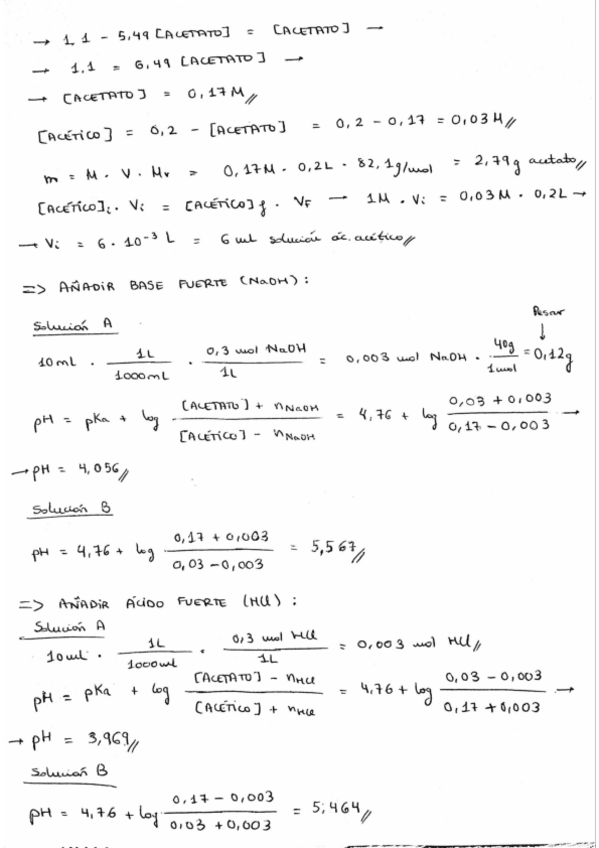 → 1,1 - 5,49 [ACETATO] = [ACETATO] →
→ 1,1 = 6,49 [ACETATO] →
→ [ACETATO] = 0,17M //
[ACÉTICO] = 0,2 - [ACETATO] = 0,2 - 0,17 = 0,03 M //
m = M · V · Mr = 0,17M · 0,2L · 82,1g/mol = 2,79g acetato //
[ACÉTICO]i · Vi = [ACÉTICO]f · VF → 1M · Vi = 0,03M · 0,2L →
→ Vi = 6 · 10⁻³ L = 6 ml solución ác. acético //
=> AÑADIR BASE FUERTE (NaOH):
Solución A
Pesar ↓
10mL · 1L/1000mL · 0,3 mol NaOH/1L = 0,003 mol NaOH · 40g/1mol = 0,12g
pH = pKa + log ([ACETATO] + nNaOH)/([ACÉTICO] - nNaOH) = 4,76 + log (0,03 + 0,003)/(0,17 - 0,003) →
→ pH = 4,056 //
Solución B
pH = 4,76 + log (0,17 + 0,003)/(0,03 - 0,003) = 5,567 //
=> AÑADIR ÁCIDO FUERTE (HCl):
Solución A
10ml · 1L/1000ml · 0,3 mol HCl/1L = 0,003 mol HCl //
pH = pKa + log ([ACETATO] - nHCl)/([ACÉTICO] + nHCl) = 4,76 + log (0,03 - 0,003)/(0,17 + 0,003) →
→ pH = 3,969 //
Solución B
pH = 4,76 + log (0,17 - 0,003)/(0,03 + 0,003) = 5,464 //